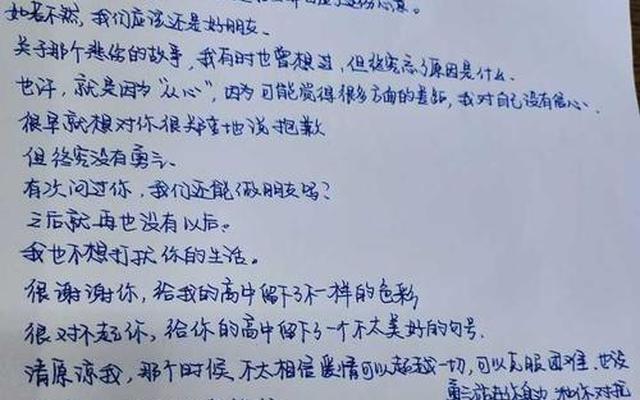 如若不然,我们应该还是好朋友。
关于那个悲伤的故事,我有时也曾想过,但终究忘了原因是什么。
也许,就是因为“从心”,因为可能觉得很多方面的差距,我对自己没有信心。
很早就想对你很郑重地说抱歉
但终究没有勇气。
有次问过你,我们还能做朋友吗?
之后就再也没有以后。
我也不想打扰你的生活。
很谢谢你,给我的高中留下了不一样的色彩
很对不起你,给你的高中留下了一个不太美好的句号。
请原谅我,那个时候不太相信爱情可以超越一切,可以克服困难。也没
勇气站在你身边 和你对抗